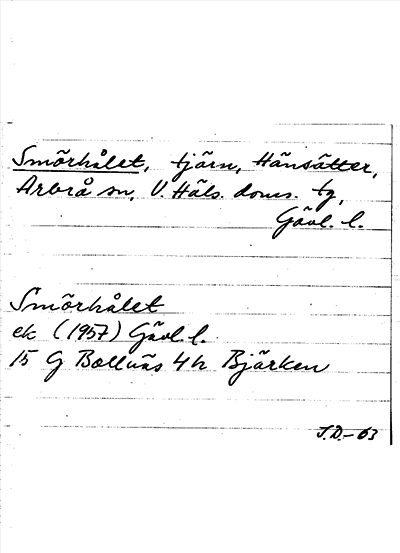 Smörhålet, tjärn, Hänsätter,
Arbrå sn, V. Häls. doms. tg,
Gävl. l.
Smörhålet
ek (1957) Gävl. l.
15 G Bollnäs 4 h Bjärken
J.D. – 63